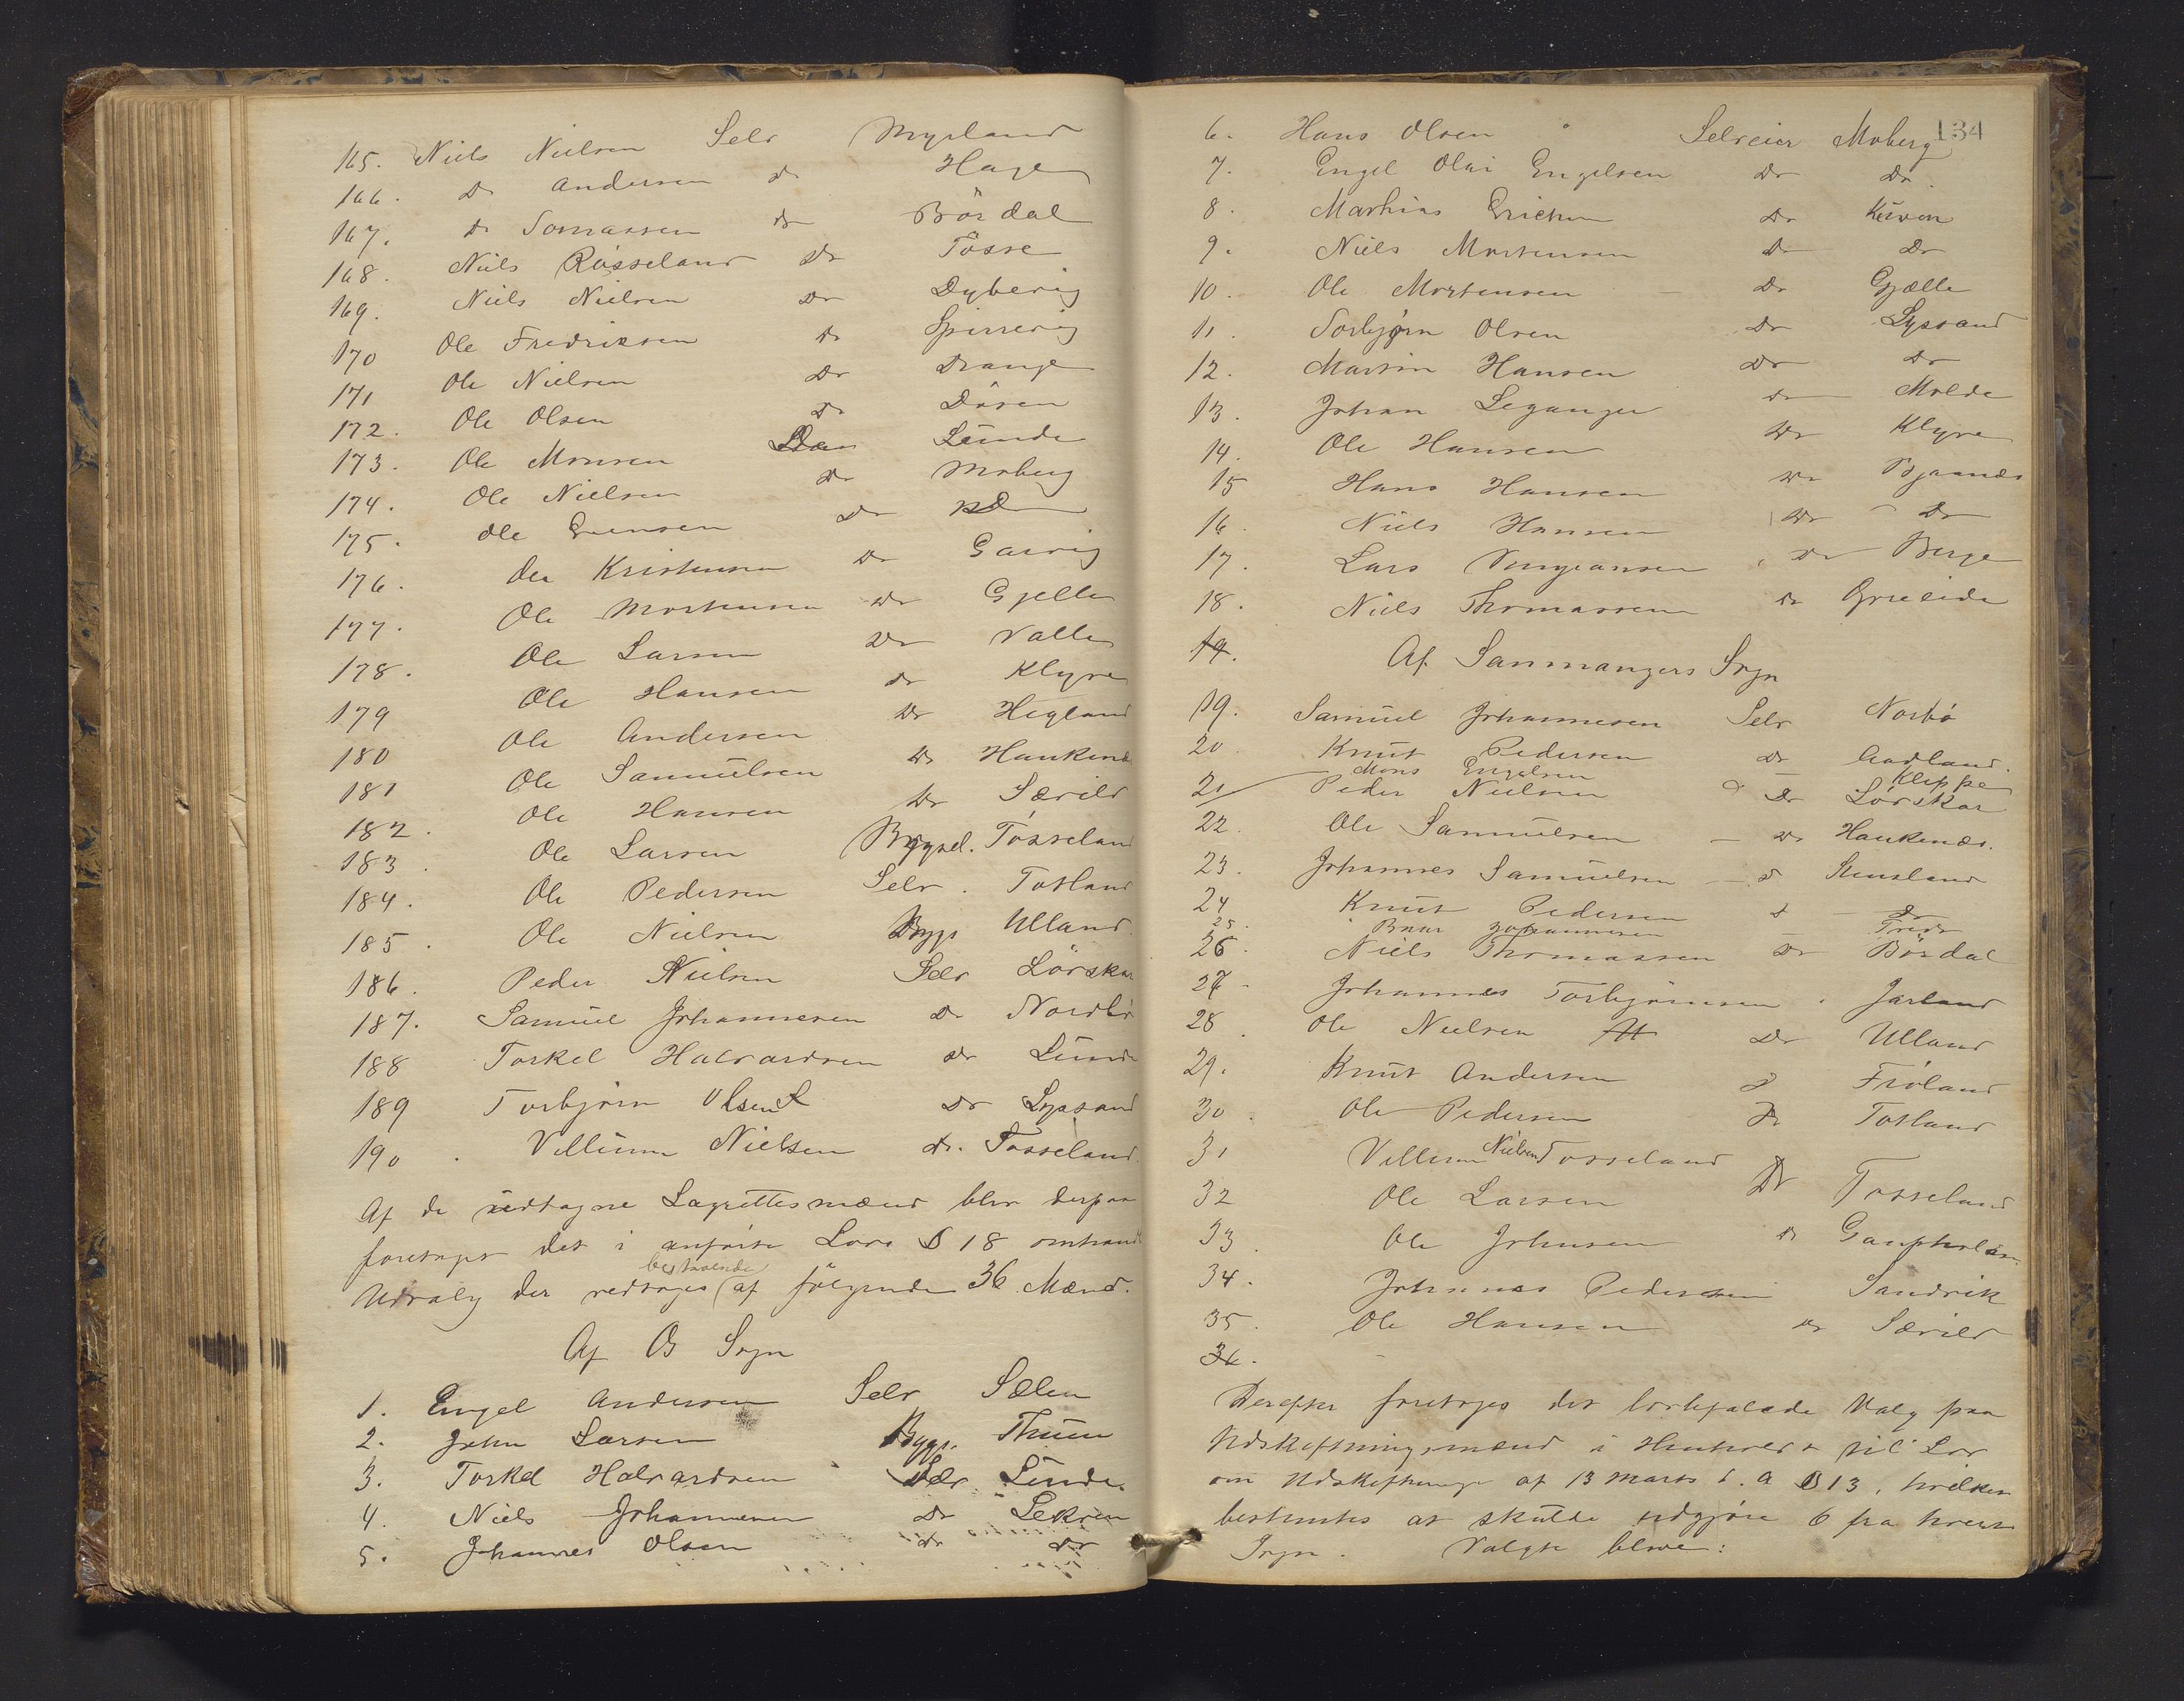 165. Niels Nielsen Selv Myrland
166. Do Andersen do Hage
167. do Tomassen do Bördal
168. Niels Røsseland Do Tösse
169. Niels Nielsen Do Dybevig
170 Ole Fredriksen do Spissevig
171 Ole Nielsen Do Drange
172. Ole Olsen Do Døsen
173. Ole Monsen Do Lunde
174. Ole Nielsen Do Moberg
175. Ole Evensen Do Do
176. Ole Kristensen Do Garvig
177. Ole Mortensen Do Gjelle
178. Ole Larsen Do Valle
179 Ole Hansen Do Klyve
180 Ole Andersen Do Hegland
181 Ole Samuelsen Do Haukenæs
182. Ole Hansen Do Sævild
183. Ole Larsen Bygsel. Tösseland
184. Ole Pedersen Selv. Totland
185. Ole Nielsen Bygs Ulland
186. Peder Nielsen Selv Lörskar
187. Samuel Johannesen Do Nordbö
188 Torkel Halvardsen do Lunde
189 Torbjørn Olsen Do Lyssand
190. Villum Nielsen do. Tøsseland.
Af de udtagne Lagrettesmænd blev derpaa
foretaget det i anførte Lovs § 18 omhandl
Udvalg der vedtoges bestaaende af følgende 36 Mænd.
Af Os Sogn
1. Engel Andersen Selv Sælen
2. John Larsen Bygs. Thuen
3. Torkel Halvardsen Selv Lunde
4. Niels Johannesen Do Lekven
5. Johannes Olsen do do
134
6. Hans Olsen Selveier Moberg
7. Engel Olai Engelsen Do Do.
8. Mathias Ericksen Do Kuven
9. Niels Mortensen Do Do
10. Ole Mortensen Do Gjælle
11. Torbjørn Olsen Do Lyssand
12. Martin Hansen Do Do
13. Johan Leganger do Molde
14. Ole Hansen Do Klyve
15 Hans Hansen Do Bjaanæs
16. Niels Hansen Do Do
17. Lars Do Berge
18. Niels Thomassen do
19. Af Sanmangers Sogn
19. Samuel Johannesen Selv Norbö
20. Knut Pedersen Do Aadland.
Mons Engelsen Kleppe
21 Peder Nielsen Do Lörskar
22. Ole Samuelsen Do Haukenæs.
23. Johannes Samuelsen d Steusland
24 Knut Pedersen d do
25. Johannesen
26. Niels Thomassen Do Bördal
27. Johannes Torbjørnsen Jarland
28. Ole Nielsen Do Ulland
29. Knut Andersen d Frøland
30. Ole Pedersen Do Totland
31 Villum Nielsen Tosseland
32 Ole Larsen Do Tosseland
33 Ole Johnsen do Gauptholm
34. Johannes Pedersen Sandvik
35. Ole Hansen do Sævild
36.
Derefter foretoges det lovbefalede Valg paa
Udskiftningsmænd i Henhold til Lov
om Udskiftning af 13 Marts d. A § 13, hvilken
bestemtes at skulde udgjøre 6 fra hvert
Sogn. Valgte bleve: